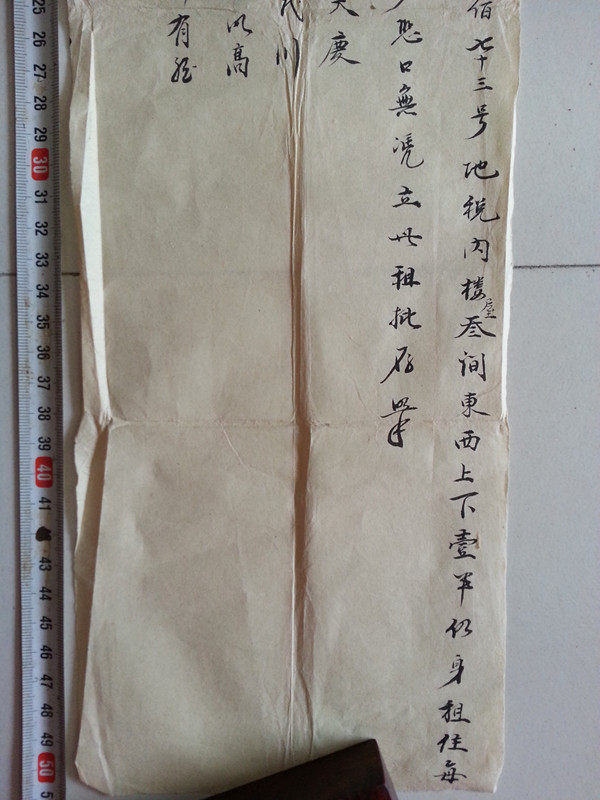 佰七十三号地税內楼屋叁间東西上下壹半仍身担住每
恐口無凭立此租批存㨿
天慶
以高
有
25
26
27
28
29
30
31
32
33
34
35
36
37
38
39
40
41
43
44
45
46
47
48
49
50